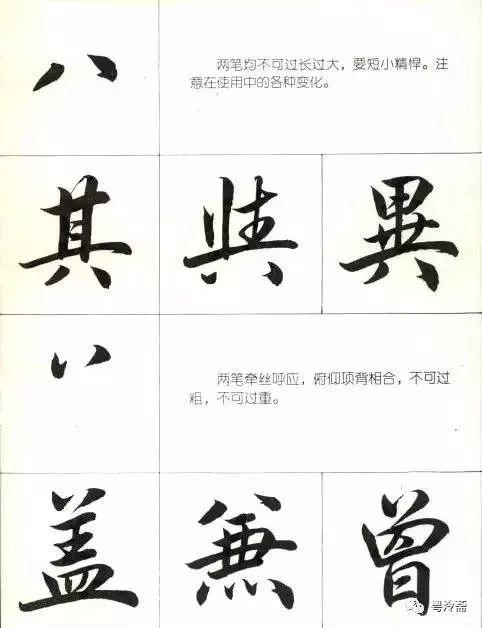 八
两笔均不可过长过大，要短小精悍。注
意在使用中的各种变化。
其 異
丷
两笔牵丝呼应，俯仰项背相合，不可过
粗，不可过重。
盖 兼 曾
粤泠斋